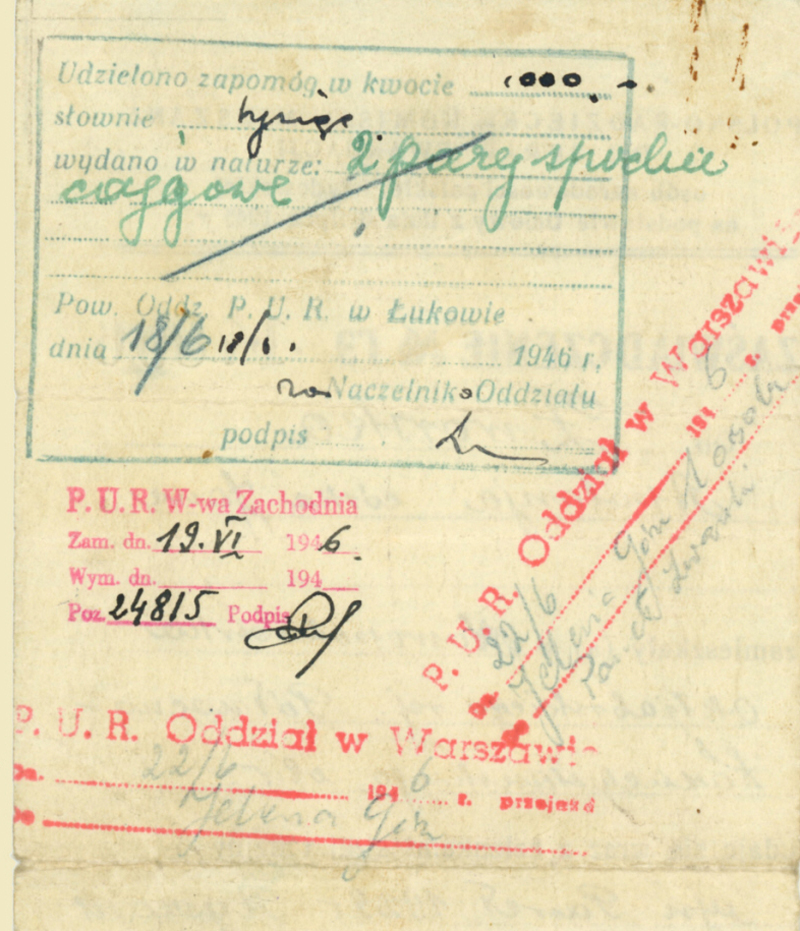 Udzielono zapomóg w kwocie 1000.-
słownie tysiąc
wydano w naturze: 2 pary spodni
cajgowe
Pow. Oddz. P. U. R. w Łukowie
dnia 18/6 18/6. 1946 r,
Naczelnik Oddziału
podpis
P. U. R. W-wa Zachodnia
Zam. dn. 19.VI 1946.
Wym. dn. 194
Poz. 24815 Podpis
P. U. R. Oddział w Warszawie
Dn. 22/6 1946 r. przejazd
do Jelenia Góra
P. U. R. Oddział w Warszawie
Dn. 22/6 1946 r. przejazd
do Jelenia Gór